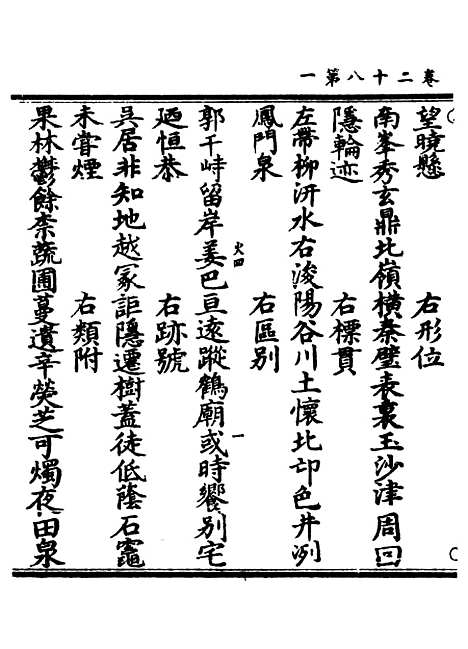 卷二十八第一
望曉懸　右形位
南峯秀玄鼎北嶺橫秦璧表裏玉沙津周回
隱輪迹　右標貫
左帶柳汧水右浚陽谷川土懷北邙色井冽
鳳門泉　右區别
郭千峙留岸姜巴亘遠蹤鶴廟或時饗别宅
火四　一
廼恒恭　右跡號
吳居非知地越冢詎隱遷樹蓋徒低蔭石竈
未嘗煙　右類附
果林鬱餘柰蔬圃蔓遺辛熒芝可燭夜田泉